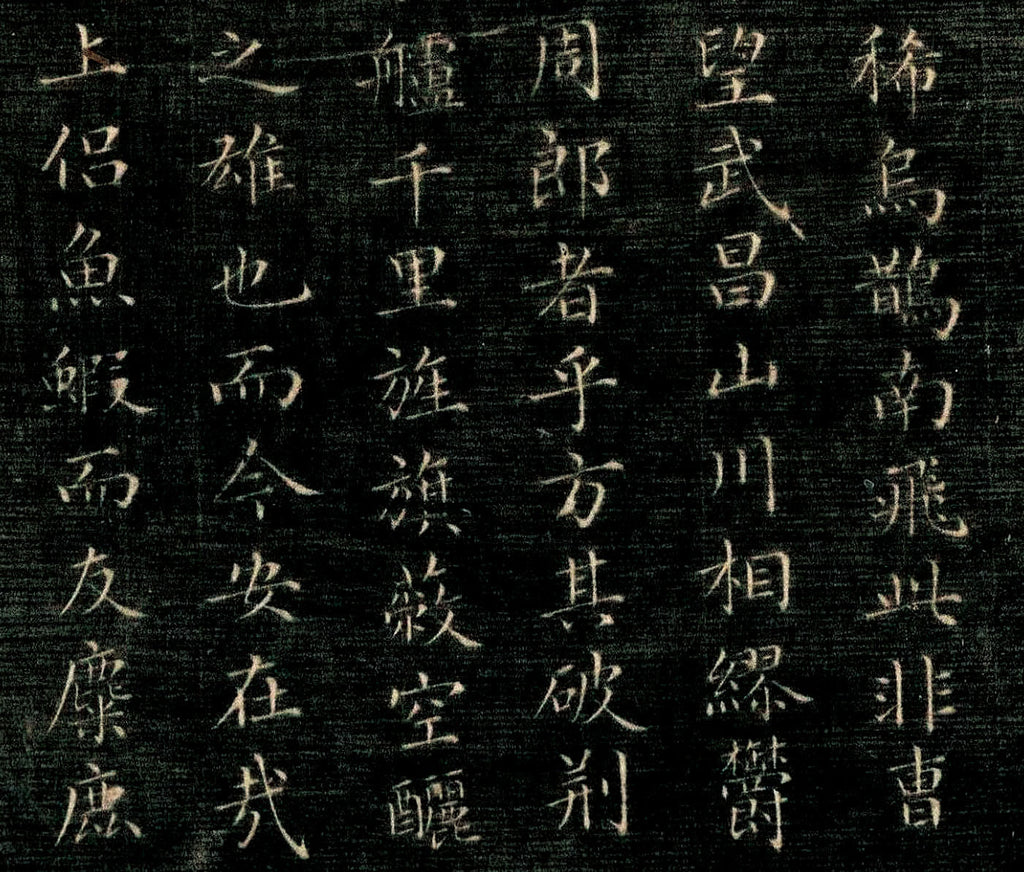 稀烏鵲南飛此非曹
望武昌山川相繆欝
周郎者乎方其破荆
艫千里旌旗蔽空釃
之雄也而今安在哉
上侣魚鰕而友麋鹿